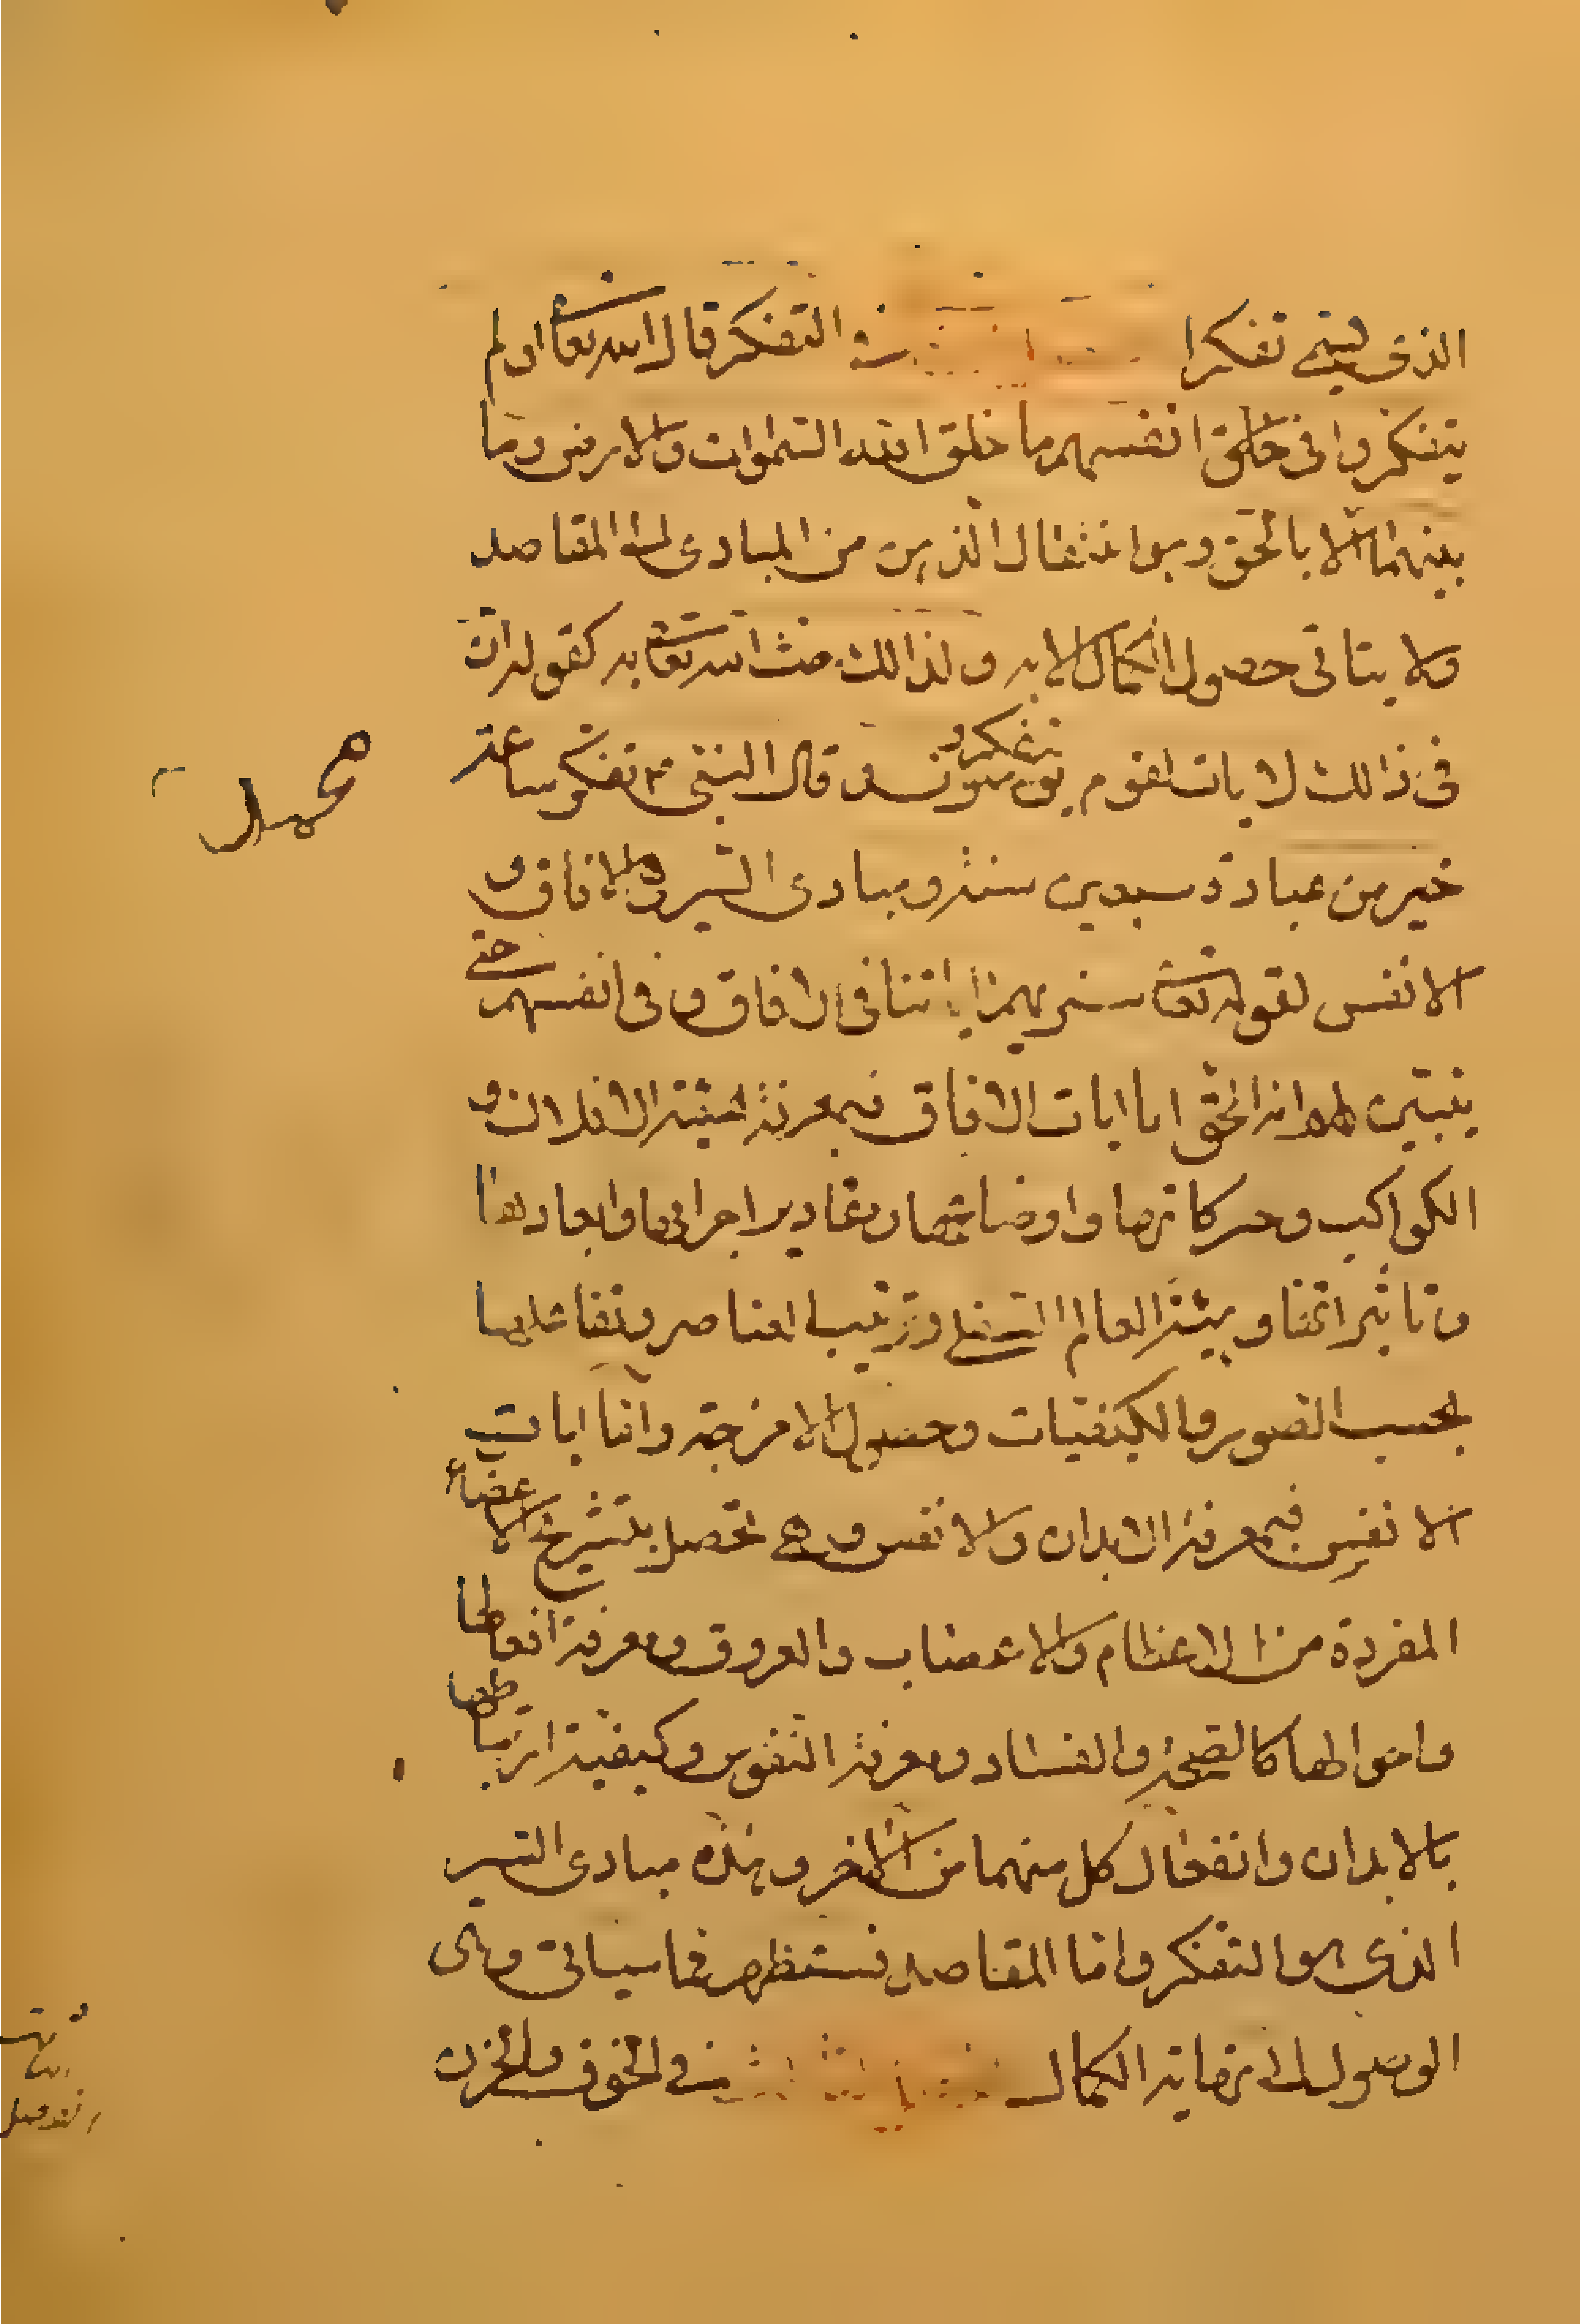 الذى يسمى تفكرا فى التفكر قال الله تعا اولم
يتفكروا فى خلق انفسهم ما خلق الله السموات والارض وما
بينهما الا بالحق وهو انتقال الذهن من المبادى الى المقاصد
ولا يتاتى حصول الكمال الا به ولذالك حث الله تعا به كقوله ان
فى ذالك لايات لقوم يتفكرون وقال النبى ص تفكر ساعة
خير من عبادة سبعين سنة ومبادى السير الافاق و
الانفس لقوله تعا سنريهم اياتنا فى الافاق وفى انفسهم حتى
يتبين لهم انه الحق اما ايات الافاق فبمعرفة هيئة الافلاك و
الكواكب وحركاتها واوضاعها ومقادير اجرامها وابعادها
وتاثيراتها وهيئة العالم السفلى وترتيب العناصر وتفاعلها
بحسب الصور والكيفيات وحصول الامزجة واما ايات
الانفس فبمعرفة الابدان والانفس وهى تحصل بتشريح الاعضاء
المفردة من العظام والاعصاب والعروق ومعرفة افعالها
واحوالها كالصحة والفساد ومعرفة النفوس وكيفية ارتباطها
بالابدان وانفعال كل منهما من الاخر وهذه مبادى السير
الذى هو التفكر واما المقاصد فستظهر فيما سياتى وهى
الوصول الى نهاية الكمال فى الخوف والحزن
محمد